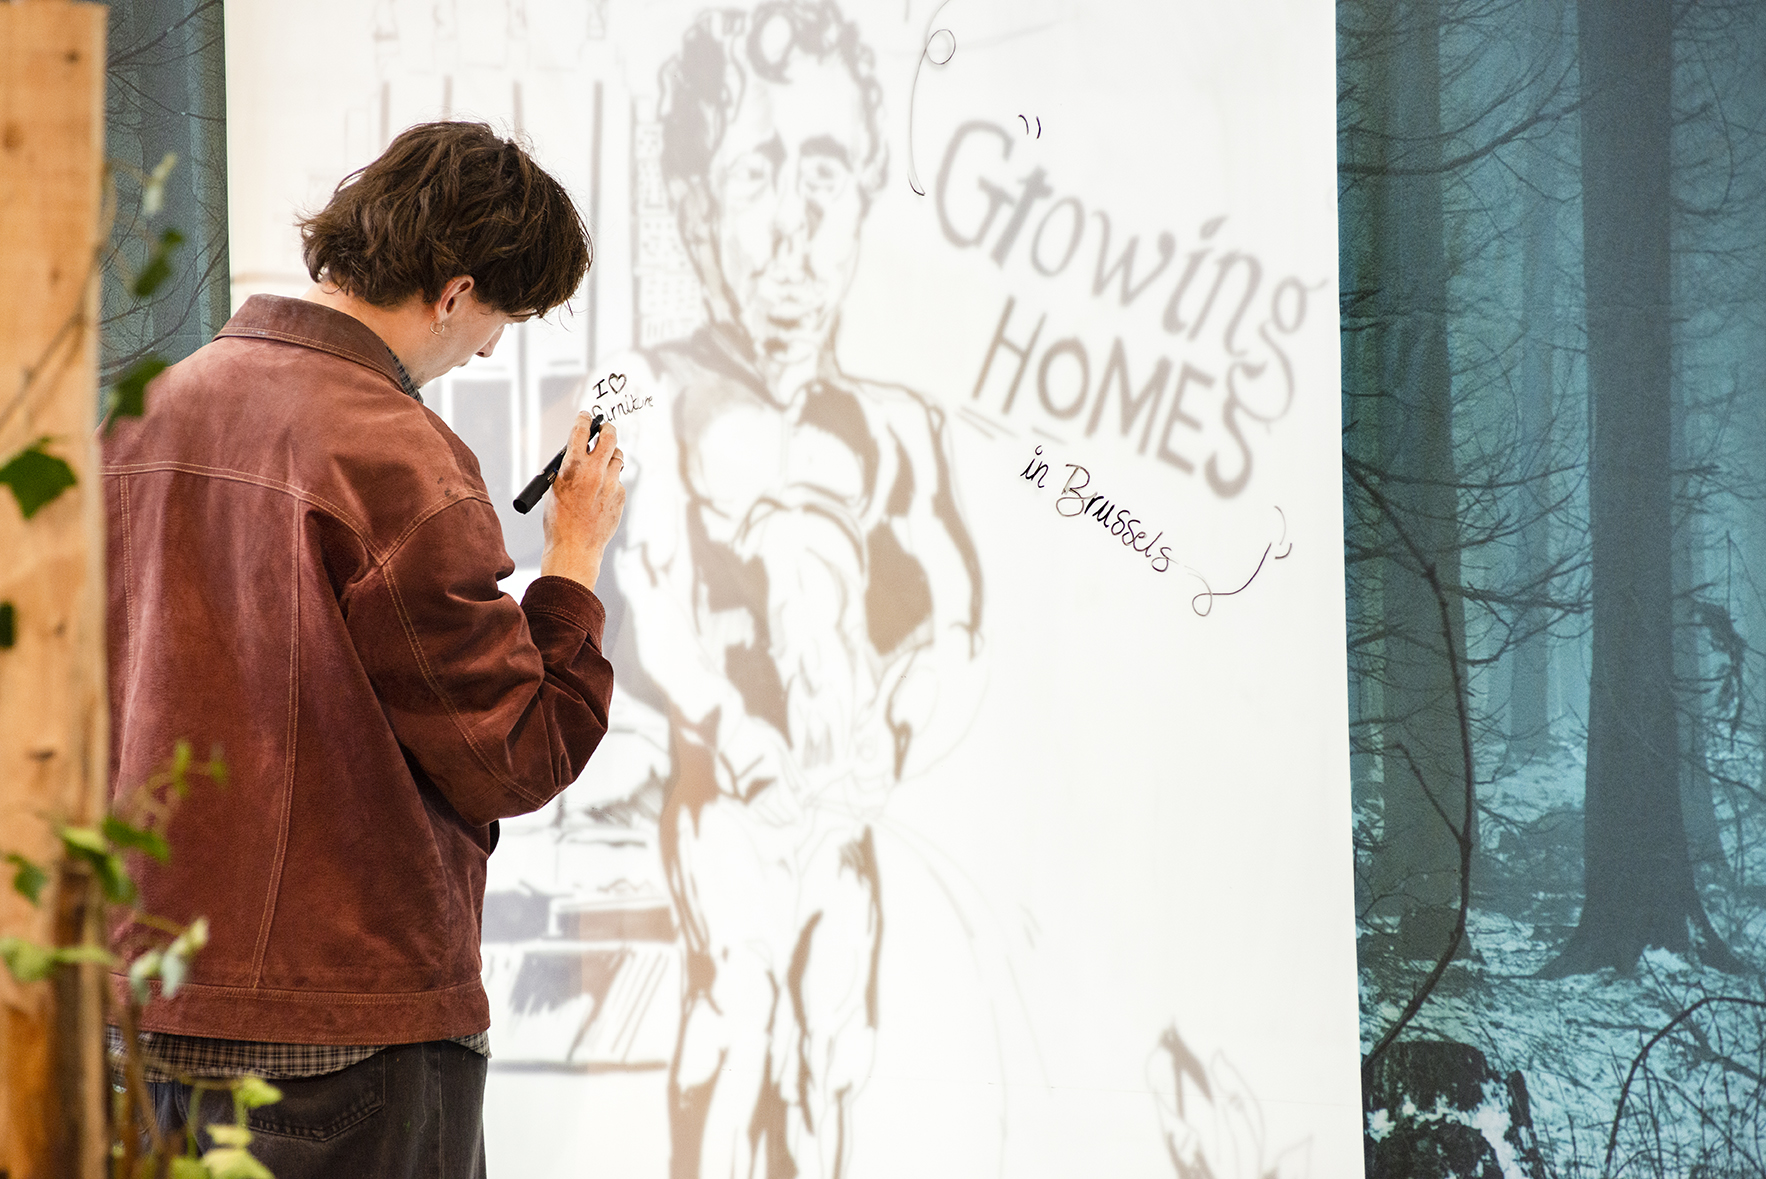 "Growing
HOMES
in Brussels
I ♡
furniture